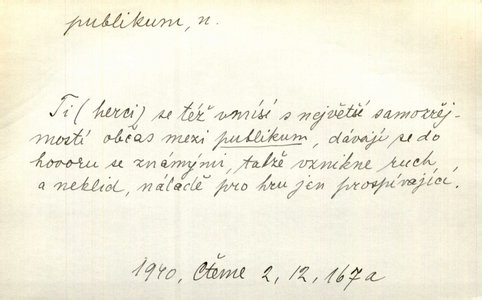 publikum, n.
Ti (herci) se též vmísí s největší samozřej-
mostí občas mezi publikum, dávají se do
hovoru se známými, takže vznikne ruch
a neklid, náladě pro hru jen prospívající.
1940, Čteme 2, 12, 167a